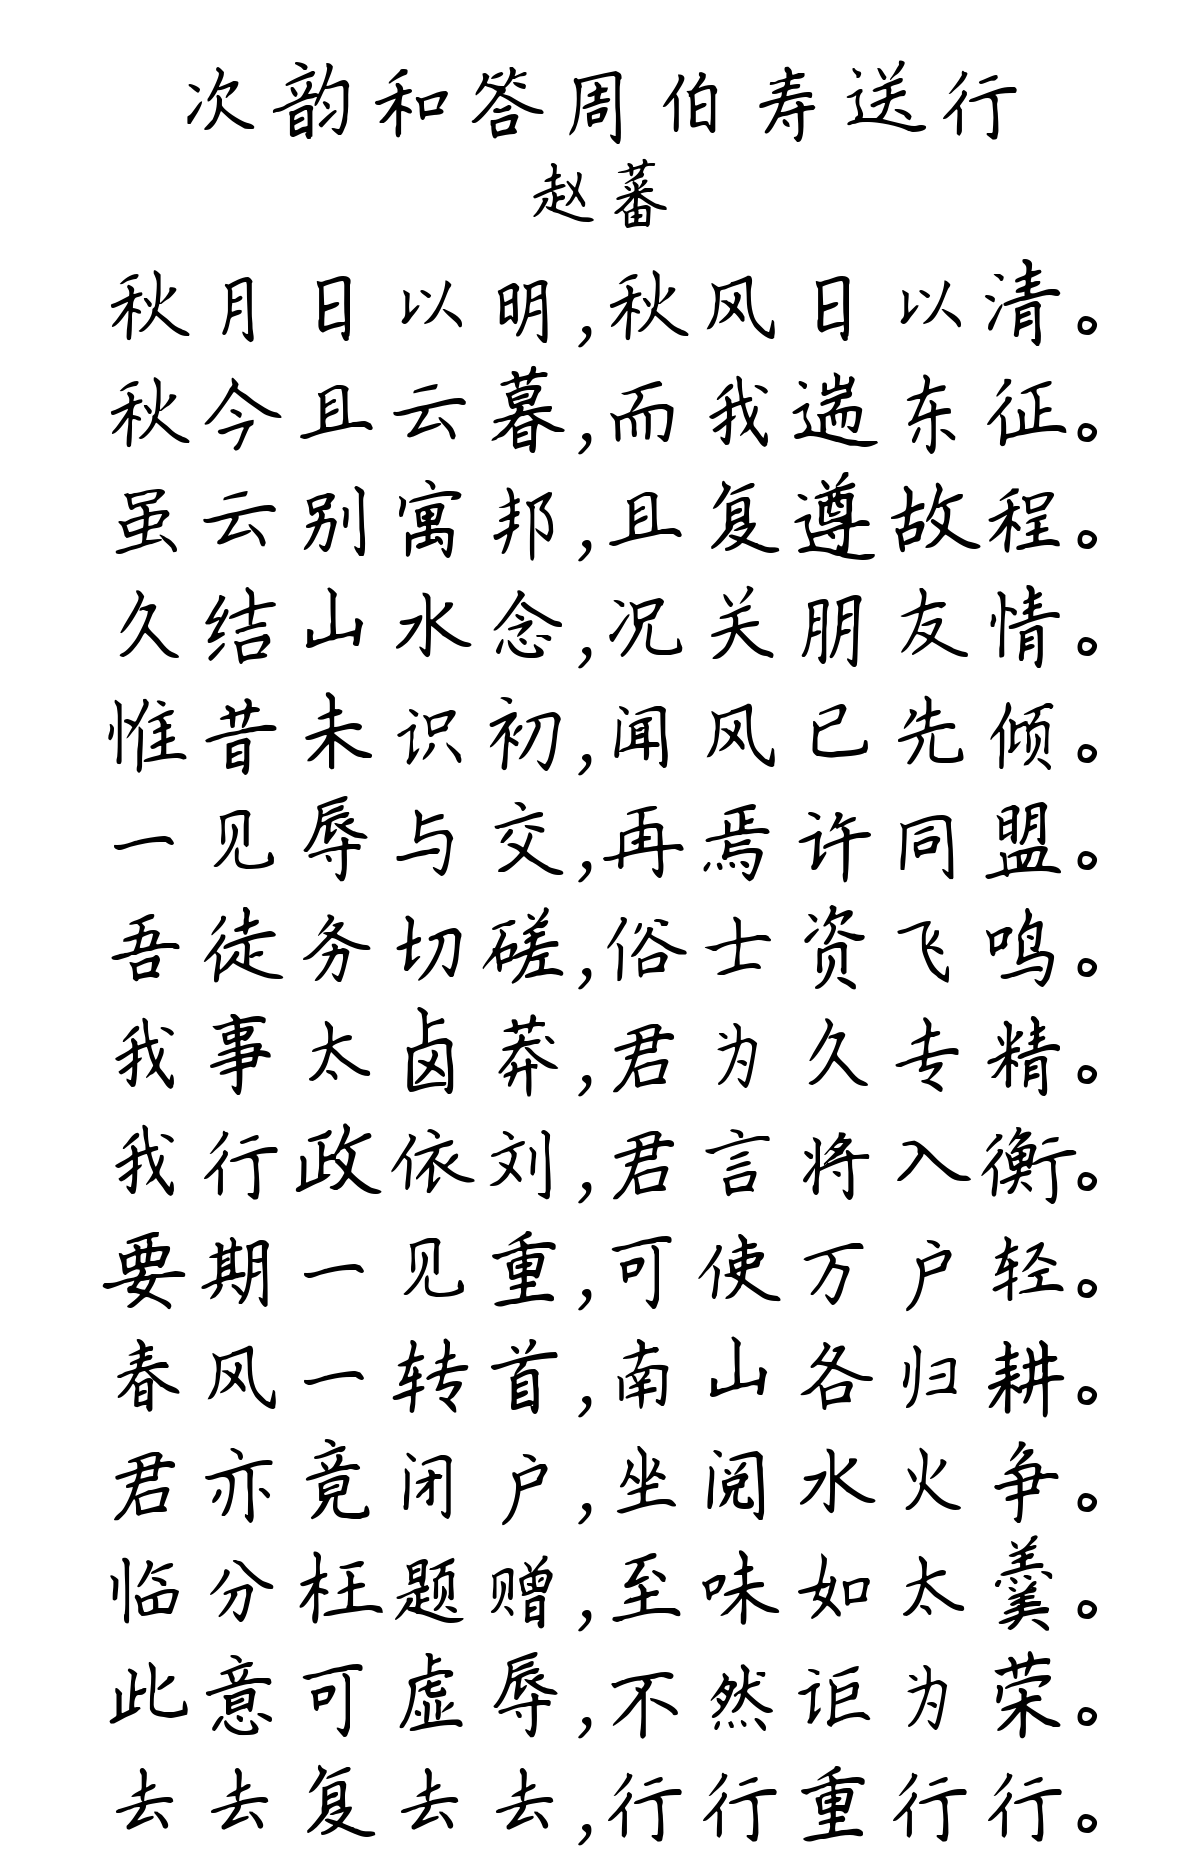 次韵和答周伯寿送行
赵蕃
秋月日以明,秋风日以清。
秋今且云暮,而我遄东征。
虽云别寓邦,且复遵故程。
久结山水念,况关朋友情。
惟昔未识初,闻风已先倾。
一见辱与交,再焉许同盟。
吾徒务切磋,俗士资飞鸣。
我事太卤莽,君为久专精。
我行政依刘,君言将入衡。
要期一见重,可使万户轻。
春风一转首,南山各归耕。
君亦竟闭户,坐阅水火争。
临分枉题赠,至味如太羹。
此意可虚辱,不然讵为荣。
去去复去去,行行重行行。